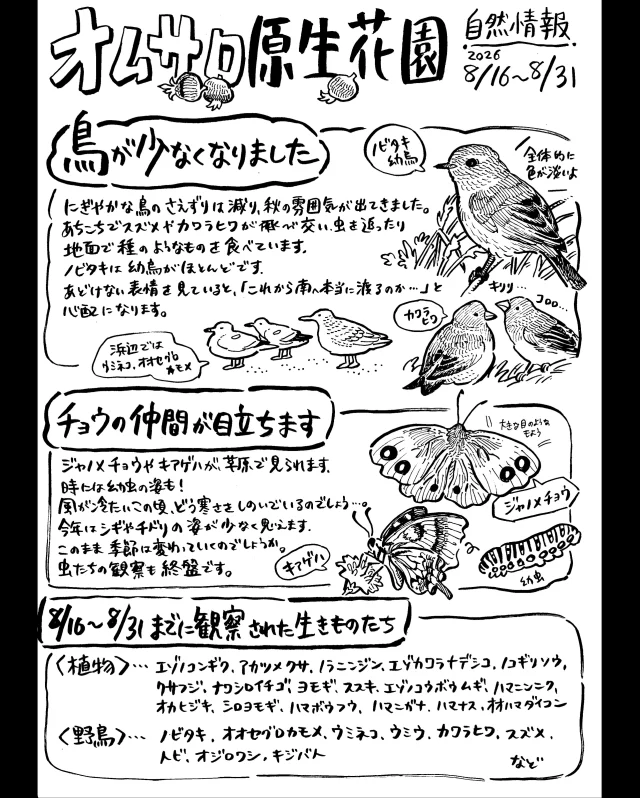 オムサロ原生花園
自然情報
2026
8/16〜8/31
鳥が少なくなりました
ノビタキ
幼鳥
全体的に
色が淡いよ
にぎやかな鳥のさえずりは減り、秋の雰囲気が出てきました。
あちこちでスズメやカワラヒワが飛び交い、虫を追ったり
地面で種のようなものを食べています。
ノビタキは幼鳥がほとんどです。
あどけない表情を見ていると、「これから南へ本当に渡るのか…」と
心配になります。
キリリ…
コロロ…
カワラ
ヒワ
浜辺では
ウミネコ、オオセグロ
カモメ
チョウの仲間が目立ちます
ジャノメチョウやキアゲハが、草原で見られます。
時には幼虫の姿も!
風が冷たいこの頃、どう寒さをしのいでいるのでしょう…。
今年はシギやチドリの姿が少なく見えます。
このまま季節は変わっていくのでしょうか。
虫たちの観察も終盤です。
大きな目のような
もよう
ジャノメチョウ
キアゲハ
幼虫
8/16〜8/31までに観察された生きものたち
〈植物〉… エゾノコンギク、アカツメクサ、ノラニンジン、エゾカワラナデシコ、ノコギリソウ、
クサフジ、ナワシロイチゴ、ヨモギ、ススキ、エゾノコウボウムギ、ハマニンニク、
オカヒジキ、シロヨモギ、ハマボウフウ、ハマニガナ、ハマナス、オオハマダイコン
〈野鳥〉… ノビタキ、オオセグロカモメ、ウミネコ、ウミウ、カワラヒワ、スズメ、
トビ、オジロワシ、キジバト
など